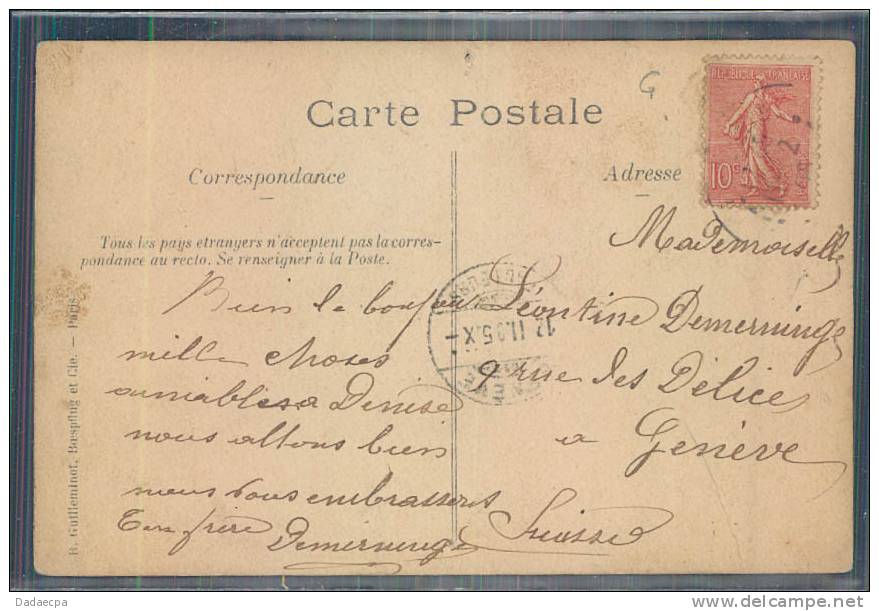 G
Carte Postale
REPUBLIQUE FRANÇAISE
10c
Correspondance
Adresse
Tous les pays etrangers n'acceptent pas la corres-
pondance au recto. Se renseigner à la Poste.
R. Guilleminot, Bœspflug et Cie. — Paris
Bien le bonjour
mille choses
aimables a Denise
nous allons bien
nous vous embrassons
Ton frère
Demerninge
Mademoiselle
Léontine Demerninge
9 rue des Délices
a Genève
Suisse
Dadaecpa
delcampe.net